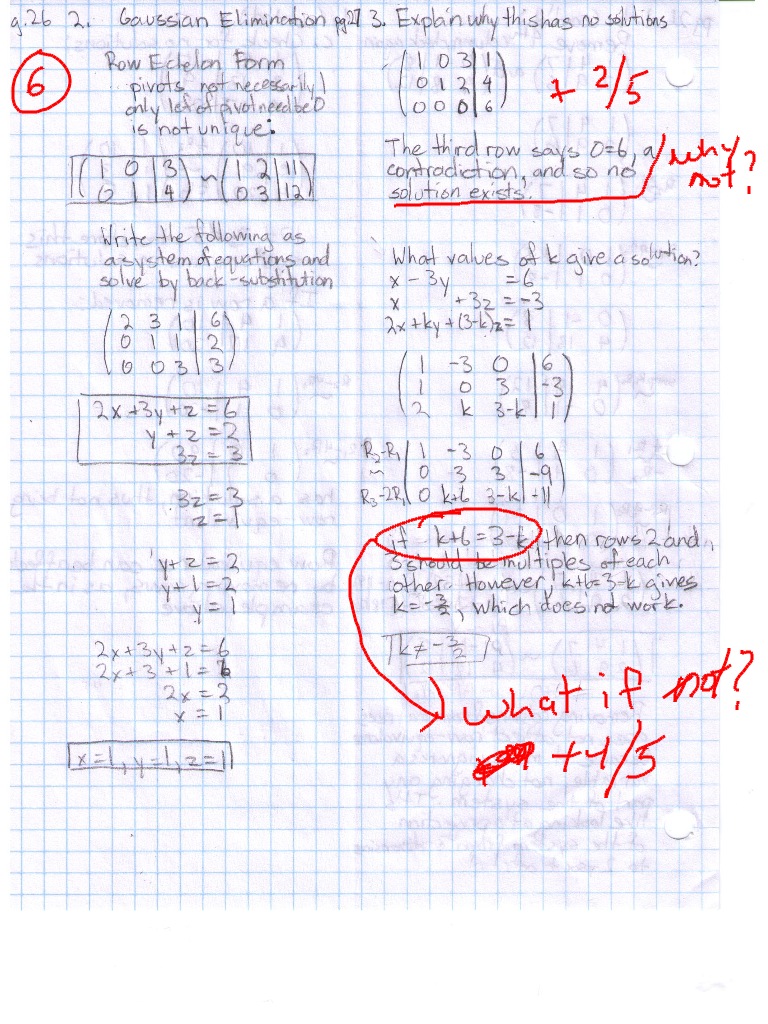 g.26 2. Gaussian Elimination pg.27 3. Explain why this has no solutions
6
Row Echelon Form
pivots not necessarily 1
only left of pivot need be 0
is not unique:
( 1 0 | 3 ) ~ ( 1 2 | 11 )
( 0 1 | 4 ) ( 0 3 | 12 )
Write the following as
a system of equations and
solve by back-substitution
( 2 3 1 | 6 )
( 0 1 1 | 2 )
( 0 0 3 | 3 )
2x+3y+z=6
y+z=2
3z=3
3z=3
z=1
y+z=2
y+1=2
y=1
2x+3y+z=6
2x+3+1=6
2x=2
x=1
x=1, y=1, z=1
( 1 0 3 | 1 )
( 0 1 2 | 4 )
( 0 0 0 | 6 )
+ 2/5
The third row says 0=6, a
contradiction, and so no
solution exists.
why
not?
What values of k give a solution?
x - 3y = 6
x + 3z = -3
2x + ky + (3-k)z = 1
( 1 -3 0 | 6 )
( 1 0 3 | -3 )
( 2 k 3-k | 1 )
R2-R1 ( 1 -3 0 | 6 )
~ ( 0 3 3 | -9 )
R3-2R1 ( 0 k+6 3-k | -11 )
if k+6=3-k, then rows 2 and
3 should be multiples of each
other. However, k+6=3-k gives
k=-3/2, which does not work.
k≠-3/2
what if not?
+4/5